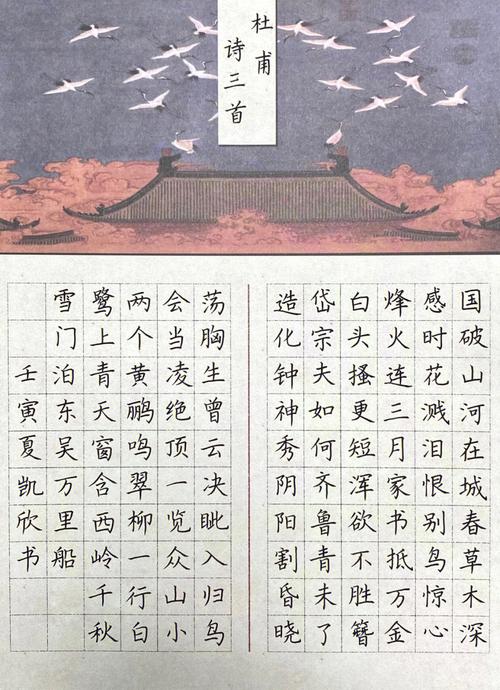 杜甫
诗三首
国破山河在城春草木深
感时花溅泪恨别鸟惊心
烽火连三月家书抵万金
白头搔更短浑欲不胜簪
岱宗夫如何齐鲁青未了
造化钟神秀阴阳割昏晓
荡胸生曾云决眦入归鸟
会当凌绝顶一览众山小
两个黄鹂鸣翠柳一行白
鹭上青天窗含西岭千秋
雪门泊东吴万里船
壬寅夏凯欣书